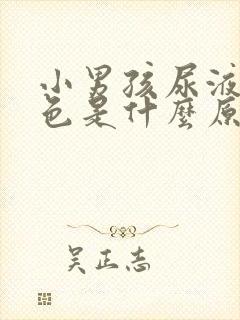 小男孩尿液
色是什麼原
吴正志